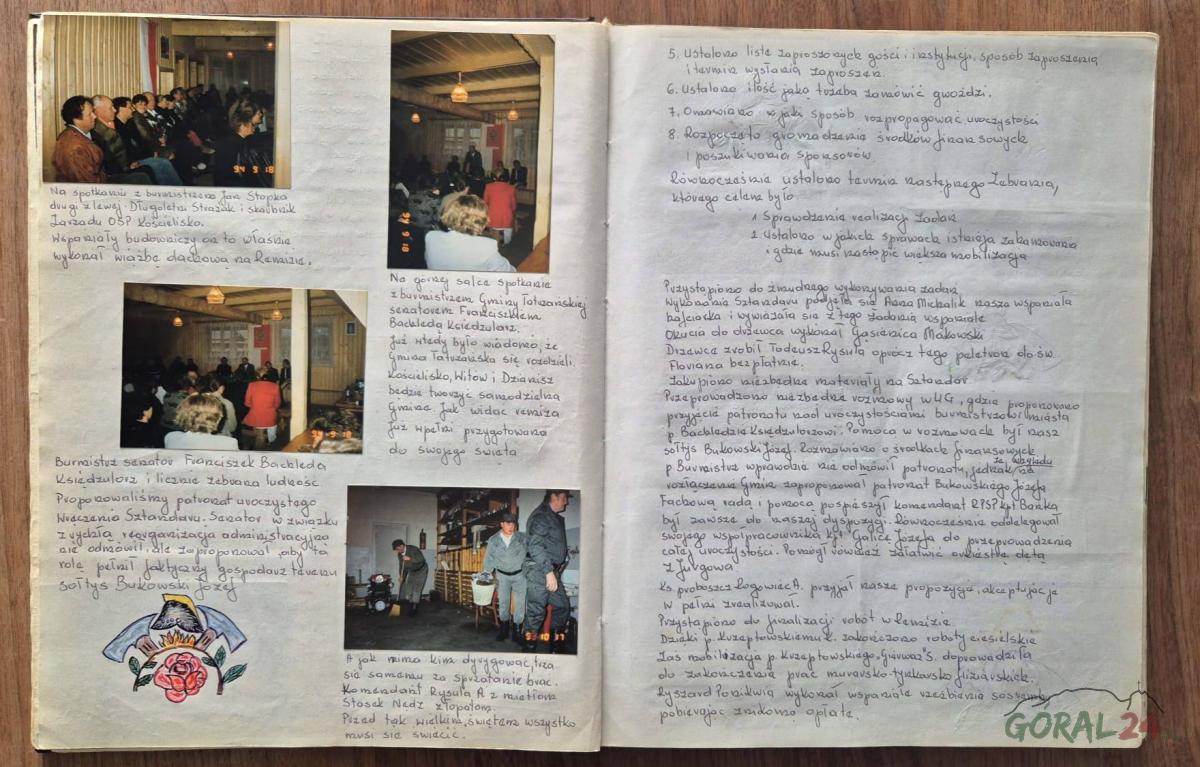 94 9 18
Na spotkaniu z burmistrzem Jan Stopka
drugi z lewej. Długoletni Strażak i skarbnik
Zarządu OSP Kościelisko.
Wspaniały budowniczy on to właśnie
wykonał więźbę dachową na Remizie.
94 9 18
Na górnej salce spotkanie
z burmistrzem Gminy Tatrzańskiej
senatorem Franciszkiem
Bachledą Księdzularz.
Już wtedy było wiadomo, że
Gmina Tatrzańska się rozdzieli.
Kościelisko, Witów i Dzianisz
będzie tworzyć samodzielną
Gminę. Jak widać remiza
już w pełni przygotowana
do swojego święta
94 9 18
Burmistrz senator Franciszek Bachleda
Księdzularz i licznie zebrana ludność
Proponowaliśmy patronat uroczystego
Wręczenia Sztandaru. Senator w związku
z wydzią reorganizacją administracyjną
nie odmówił, ale zaproponował, aby tą
rolę pełnił faktyczny gospodarz terenu
sołtys Bukowski Józef
A jak nima kim dyrygować, trza
się samemu za sprzątanie brać.
Komendant Rysula A z mietłom
Stasek Nędz z łopatom.
Przed tak wielkim, świętem wszystko
musi się świecić.
5. Ustalono listę zaproszonych gości i instytucji, sposób zaproszenia
i termin wysłania zaproszeń.
6. Ustalono ilość jako trzeba zamówić gwoździ.
7. Omawiano w jaki sposób rozpropagować uroczystości
8. Rozpoczęto gromadzenie środków finansowych
i poszukiwania sponsorów
Równocześnie ustalono termin następnego Zebrania,
którego celem było
1. Sprawdzenie realizacji zadań
2. Ustalono w jakich sprawach istnieją zahamowania
i gdzie musi nastąpić większa mobilizacja
Przystąpiono do żmudnego wykonywania zadań
Wykonania Sztandaru podjęła się Anna Michalik nasza wspaniała
hafciarka i wywiązała się z tego zadania wspaniale
Okucia do drzewca wykonał Gąsienica Makowski
Drzewce zrobił Tadeusz Rysula oprócz tego paletron do św.
Floriana bezpłatnie.
Zakupiono niezbędne materiały na Sztandar
Przeprowadzono niezbędne rozmowy w UG, gdzie proponowano
przyjęcie patronatu nad uroczystościami burmistrzowi miasta
p Bachledzie Księdzularzowi. Pomocą w rozmowach był nasz
sołtys Bukowski Józef. Rozmawiano o środkach finansowych
p Burmistrz wprawdzie nie odmówił patronatu, jednak ze względu na
rozłączenie Gmin zaproponował patronat Bukowskiego Józefa
Fachową radą i pomocą pospieszył komendant RPSP kpt Bańka
był zawsze do naszej dyspozycji. Równocześnie oddelegował
swojego współpracownika kpt Galicę Józefa do przeprowadzenia
całej uroczystości. Pomógł również załatwić orkiestrę dętą
z Jurgowa.
Ks proboszcz Łogowiec A. przyjął nasze propozycje, akceptując je
w pełni zrealizował.
Przystąpiono do finalizacji robót w Remizie.
Dzięki p. Krzeptowskiemu K. zakończono roboty ciesielskie
Zaś mobilizacja p. Krzeptowskiego "S. doprowadziła
do zakończenia prac murarsko-tynkarsko-glazurskich.
Ryszard Ponikwia wykonał wspaniale rzeźbienia sosrembu
pobierając znikomą opłatę.
GORAL24